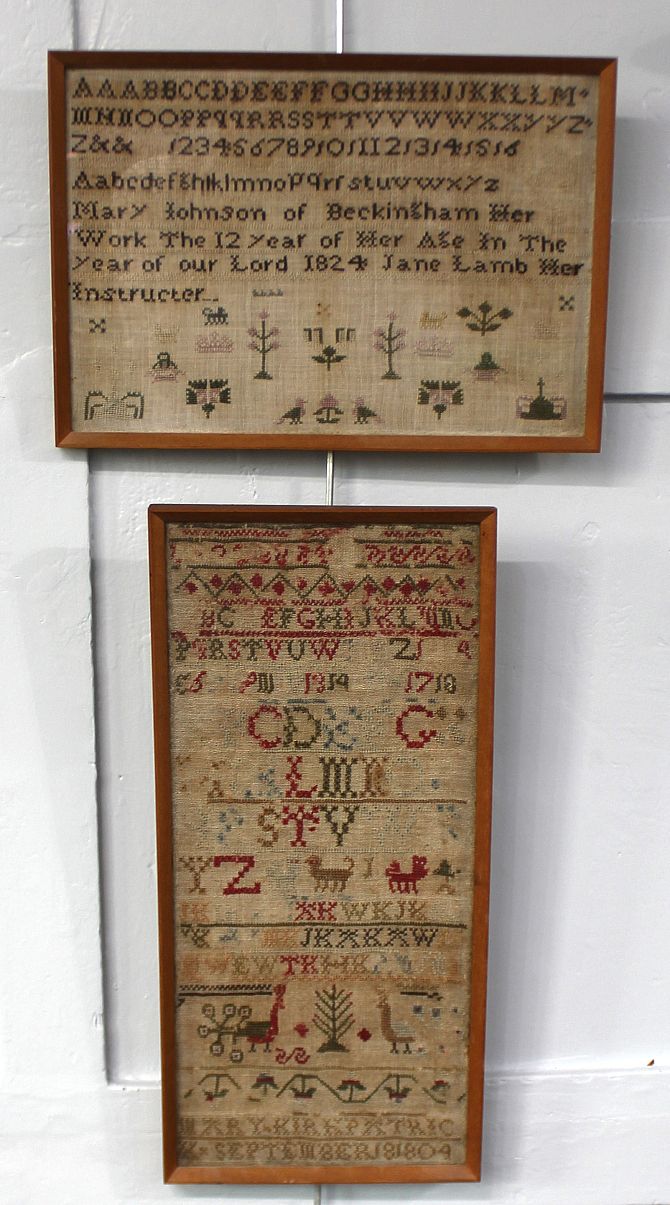 AAABBCCDDEEFFGGHHHIJJKKLLM
MNNOOPPqqRRSSTTVVWWXXyyZ
Z&& 12345678910111213141516
Aabcdefghiklmnopqrſstuvwxyz
Mary Iohnson of Beckingham Her
Work The 12 year of Her Age In The
year of our Lord 1824 Jane Lamb Her
Instructer
BC EFGHIJKLMN
PqRSTVUW Z
CDE G
LMN
STV
YZ
KWKJK
JKAKAW
EWTKHK
MARY KIRKPATRIC
K SEPTEMBER 18 1804